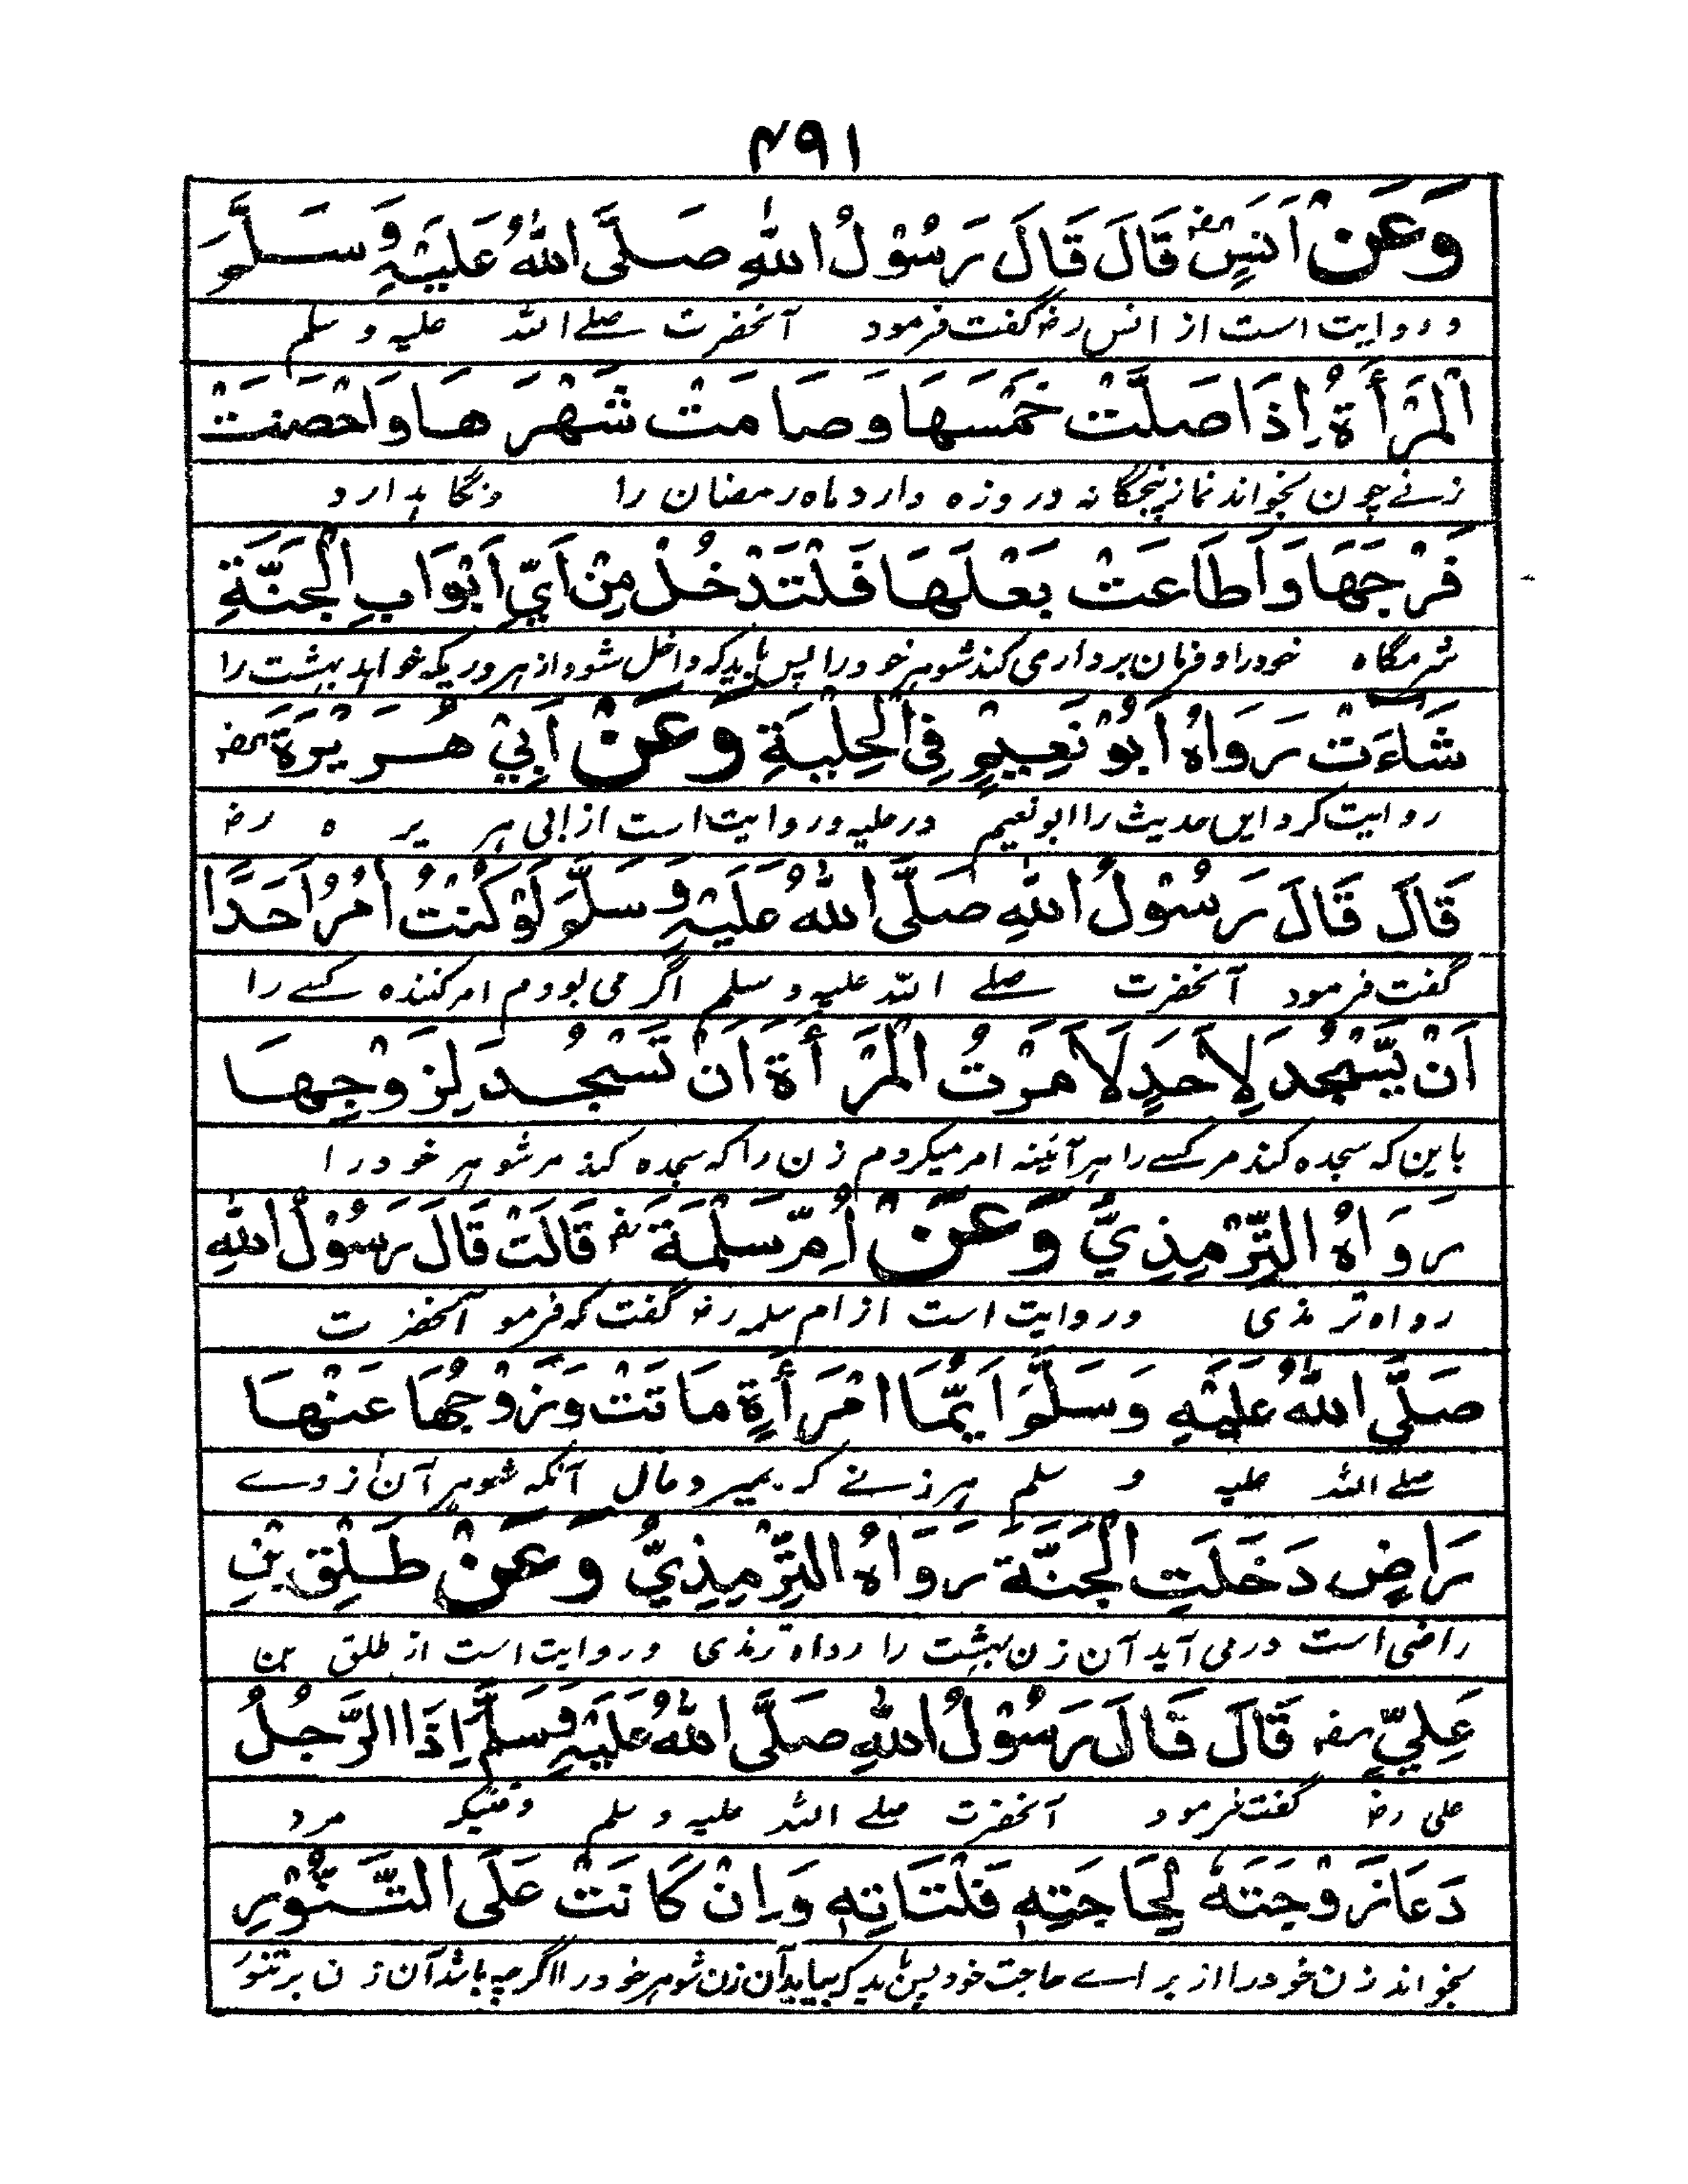 ۴۹۱
وَعَنْ اَنَسٍ رض قَالَ قَالَ رَسُوْلُ اللّٰهِ صَلَّى اللّٰهُ عَلَيْهِ وَسَلَّمَ
و روایت است از انس رض گفت فرمود آنحضرت صلے اللہ علیہ و سلم
اَلْمَرْأَةُ اِذَا صَلَّتْ خَمْسَهَا وَصَامَتْ شَهْرَهَا وَاَحْصَنَتْ
زنے چون بخواند نماز پنجگانہ و روزہ دارد ماہ رمضان را و نگاہدارد
فَرْجَهَا وَاَطَاعَتْ بَعْلَهَا فَلْتَدْخُلْ مِنْ اَيِّ اَبْوَابِ الْجَنَّةِ
شرمگاہ خود را و فرمان برداری کند شوہر خود را پس باید کہ داخل شود از ہر دریکہ خواہد بہشت را
شَاءَتْ رَوَاهُ اَبُوْ نَعِيْمٍ فِي الْحِلْيَةِ وَعَنْ اَبِيْ هُرَيْرَةَ رض
روایت کرد ایں حدیث را ابو نعیم در حلیہ و روایت است از ابی ہریرہ رض
قَالَ قَالَ رَسُوْلُ اللّٰهِ صَلَّى اللّٰهُ عَلَيْهِ وَسَلَّمَ لَوْ كُنْتُ اٰمُرُ اَحَدًا
گفت فرمود آنحضرت صلے اللہ علیہ و سلم اگر می بودم امر کنندہ کسے را
اَنْ يَّسْجُدَ لِاَحَدٍ لَاَمَرْتُ الْمَرْأَةَ اَنْ تَسْجُدَ لِزَوْجِهَا
باین کہ سجدہ کند مر کسے را ہر آئینہ امر میکردم زن را کہ سجدہ کند مر شوہر خود را
رَوَاهُ التِّرْمِذِيُّ وَعَنْ اُمِّ سَلْمَةَ رض قَالَتْ قَالَ رَسُوْلُ اللّٰهِ
رواہ ترمذی و روایت است از ام سلمہ رض گفت کہ فرمو آنحضرت
صَلَّى اللّٰهُ عَلَيْهِ وَسَلَّمَ اَيُّمَا امْرَأَةٍ مَاتَتْ وَزَوْجُهَا عَنْهَا
صلے اللہ علیہ و سلم ہر زنے کہ بمیرد و حال آنکہ شوہر آن از وے
رَاضٍ دَخَلَتِ الْجَنَّةَ رَوَاهُ التِّرْمِذِيُّ وَعَنْ طَلْقِ بْنِ
راضی است درمی آید آن زن بہشت را رواہ ترمذی و روایت است از طلق بن
عَلِيٍّ رض قَالَ قَالَ رَسُوْلُ اللّٰهِ صَلَّى اللّٰهُ عَلَيْهِ وَسَلَّمَ اِذَا الرَّجُلُ
علی رض گفت فرمود آنحضرت صلے اللہ علیہ و سلم وقتیکہ مرد
دَعَا زَوْجَتَهُ لِحَاجَتِهِ فَلْتَاتِهِ وَاِنْ كَانَتْ عَلَى التَّنُّوْرِ
بخواند زن خود را از براے حاجت خود پس باید کہ بیاید آن زن شوہر خود را اگرچہ باشد آن زن بر تنور